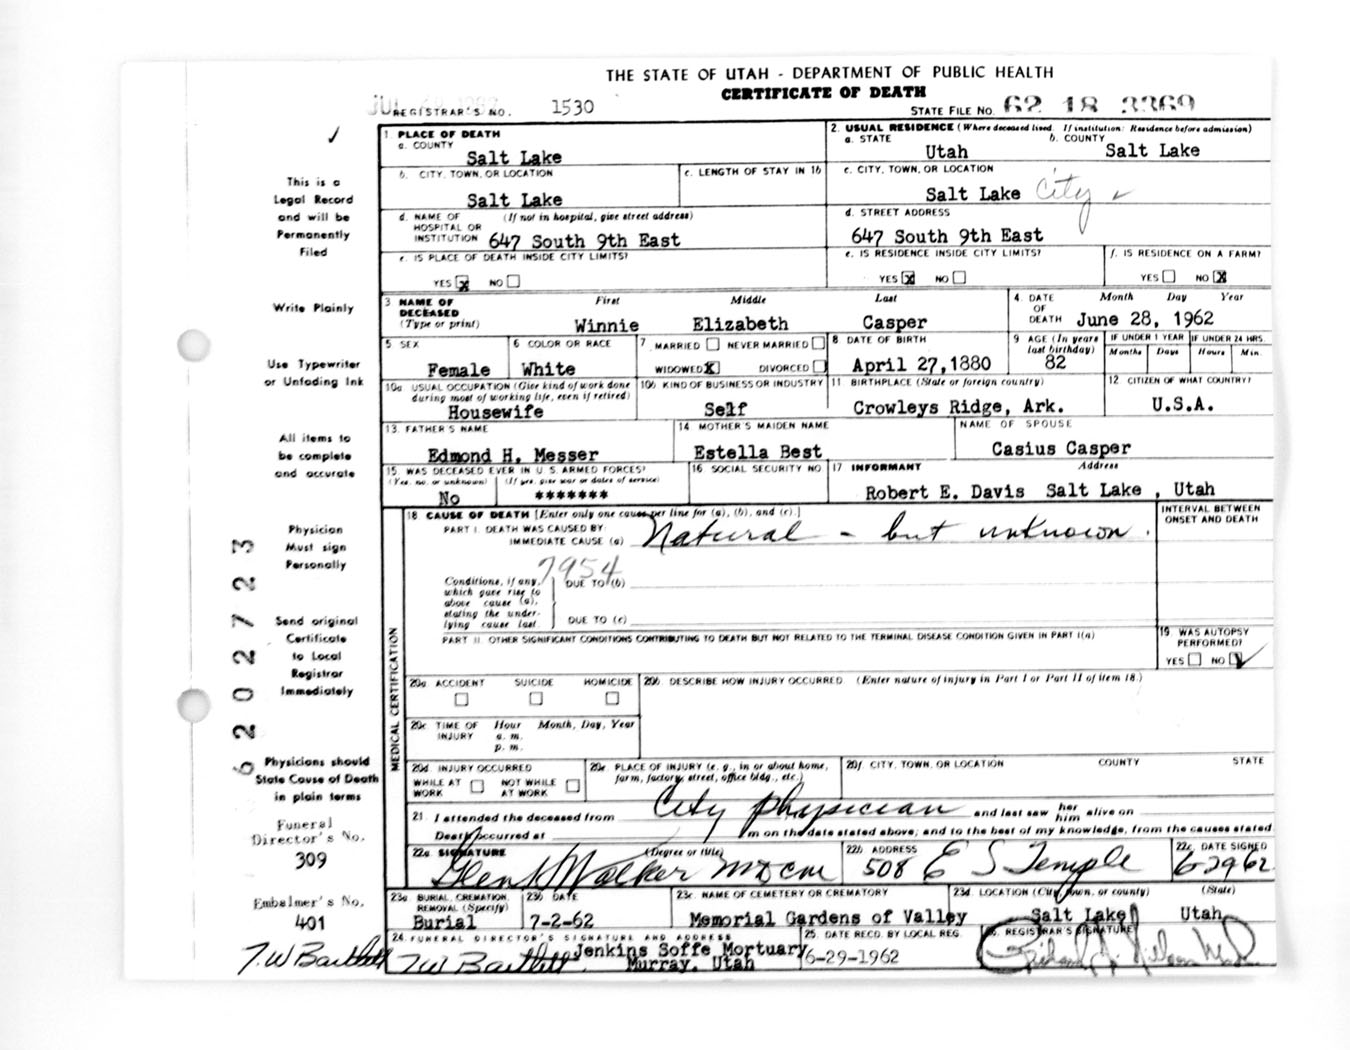 THE STATE OF UTAH - DEPARTMENT OF PUBLIC HEALTH
CERTIFICATE OF DEATH
REGISTRAR'S NO. 1530
STATE FILE NO. 62 18 3369
✓
1 PLACE OF DEATH
a. COUNTY
Salt Lake
2. USUAL RESIDENCE (Where deceased lived. If institution: Residence before admission)
a. STATE Utah b. COUNTY Salt Lake
b. CITY, TOWN, OR LOCATION
Salt Lake
c. LENGTH OF STAY IN 1b
c. CITY, TOWN, OR LOCATION
Salt Lake City ✓
d. NAME OF (If not in hospital, give street address)
HOSPITAL OR
INSTITUTION 647 South 9th East
d. STREET ADDRESS
647 South 9th East
e. IS PLACE OF DEATH INSIDE CITY LIMITS?
YES X NO
e. IS RESIDENCE INSIDE CITY LIMITS?
YES X NO
f. IS RESIDENCE ON A FARM?
YES NO X
3 NAME OF DECEASED
(Type or print)
First Middle Last
Winnie Elizabeth Casper
4. DATE OF DEATH
Month Day Year
June 28, 1962
5 SEX
Female
6 COLOR OR RACE
White
7 MARRIED NEVER MARRIED
WIDOWED X DIVORCED
8 DATE OF BIRTH
April 27,1880
9 AGE (In years last birthday)
82
IF UNDER 1 YEAR
Months Days
IF UNDER 24 HRS.
Hours Min.
10a USUAL OCCUPATION (Give kind of work done
during most of working life, even if retired)
Housewife
10b KIND OF BUSINESS OR INDUSTRY
Self
11 BIRTHPLACE (State or foreign country)
Crowleys Ridge, Ark.
12 CITIZEN OF WHAT COUNTRY?
U.S.A.
13. FATHER'S NAME
Edmond H. Messer
14 MOTHER'S MAIDEN NAME
Estella Best
NAME OF SPOUSE
Casius Casper
15. WAS DECEASED EVER IN U. S. ARMED FORCES?
(Yes, no, or unknown) (If yes, give war or dates of service)
No *******
16 SOCIAL SECURITY NO.
17 INFORMANT Address
Robert E. Davis Salt Lake , Utah
MEDICAL CERTIFICATION
18 CAUSE OF DEATH [Enter only one cause per line for (a), (b), and (c).]
PART I. DEATH WAS CAUSED BY:
IMMEDIATE CAUSE (a) Natural - but unknown.
INTERVAL BETWEEN
ONSET AND DEATH
7954
Conditions, if any,
which gave rise to
above cause (a),
stating the under-
lying cause last.
DUE TO (b)
DUE TO (c)
PART II. OTHER SIGNIFICANT CONDITIONS CONTRIBUTING TO DEATH BUT NOT RELATED TO THE TERMINAL DISEASE CONDITION GIVEN IN PART I(a)
19. WAS AUTOPSY
PERFORMED?
YES NO ✓
20a. ACCIDENT SUICIDE HOMICIDE
20b. DESCRIBE HOW INJURY OCCURRED. (Enter nature of injury in Part I or Part II of item 18.)
20c TIME OF INJURY
Hour Month, Day, Year
a. m.
p. m.
20d. INJURY OCCURRED
WHILE AT WORK NOT WHILE AT WORK
20e. PLACE OF INJURY (e. g., in or about home,
farm, factory, street, office bldg., etc.)
20f. CITY, TOWN, OR LOCATION COUNTY STATE
21. I attended the deceased from City physician and last saw her him alive on
Death occurred at m on the date stated above; and to the best of my knowledge, from the causes stated
22a SIGNATURE (Degree or title)
Glen Walker MDCM
22b ADDRESS
508 E S Temple
22c. DATE SIGNED
6 29 62
23a. BURIAL, CREMATION,
REMOVAL (Specify)
Burial
23b DATE
7-2-62
23c. NAME OF CEMETERY OR CREMATORY
Memorial Gardens of Valley
23d. LOCATION (City, town, or county) (State)
Salt Lake Utah
24. FUNERAL DIRECTOR'S SIGNATURE AND ADDRESS
T.W Bartlett Jenkins Soffe Mortuary
Murray, Utah
25. DATE RECD. BY LOCAL REG.
6-29-1962
26. REGISTRAR'S SIGNATURE
This is a
Legal Record
and will be
Permanently
Filed
Write Plainly
Use Typewriter
or Unfading Ink
All items to
be complete
and accurate
Physician
Must sign
Personally
Send original
Certificate
to Local
Registrar
Immediately
Physicians should
State Cause of Death
in plain terms
Funeral
Director's No.
309
Embalmer's No.
401
T.W Bartlett
6202723